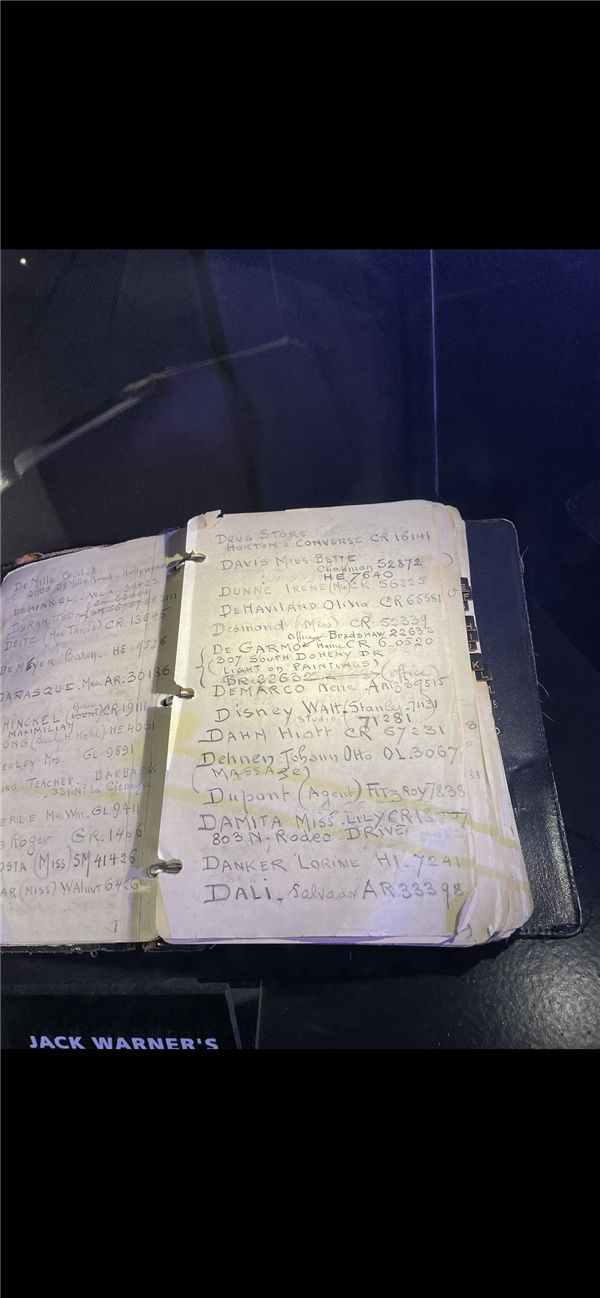 De Mille Cecil. B
2000 De Mille Road. Hollywood
DEMENKEL.
DURAN
DEITZ (Mrs Tannis) CR 13645
DE MEYER Baron. HE-9526
DARASQUE. Mrs. AR. 30186
HINCKEL CR 19111
MAXIMILIAN
HE 4061
Mrs. GL 9891
ING TEACHER. BARBA
331 N. La Cienega
ERLE Mrs Wm. GL 9411
Roger GR. 1466
OSTA (Miss) SM 41426
AR (Miss) Walnut 6426
DRUG STORE
HORTON & CONVERSE CR 16141
DAVIS MISS BETTE
Chapman 52872
HE 7640
DUNNE IRENE (Nu) CR 56225
DEHAVILAND Olivia CR 65581
Desmond (Miss) CR 52339
Office Bradshaw 22632
DE GARMOE Home CR 6-0520
307 SOUTH DOHENY DR
(LIGHT ON PAINTINGS)
BR. 22632 (office)
DEMARCO Rene. Ariz 39515
Disney Walt. Stanley 71131
STUDIO (71281)
DAHN Hiott CR 67231
Dehnen Johann Otto OL. 3067
(MASSAGE)
Dupont (Agent) FITZROY 7838
DAMITA MISS. LILY CR
803 N. Rodeo DRIVE.
DANKER LORINE HI-7241
DALI, Salvador AR 33398
EF
KL
JACK WARNER'S